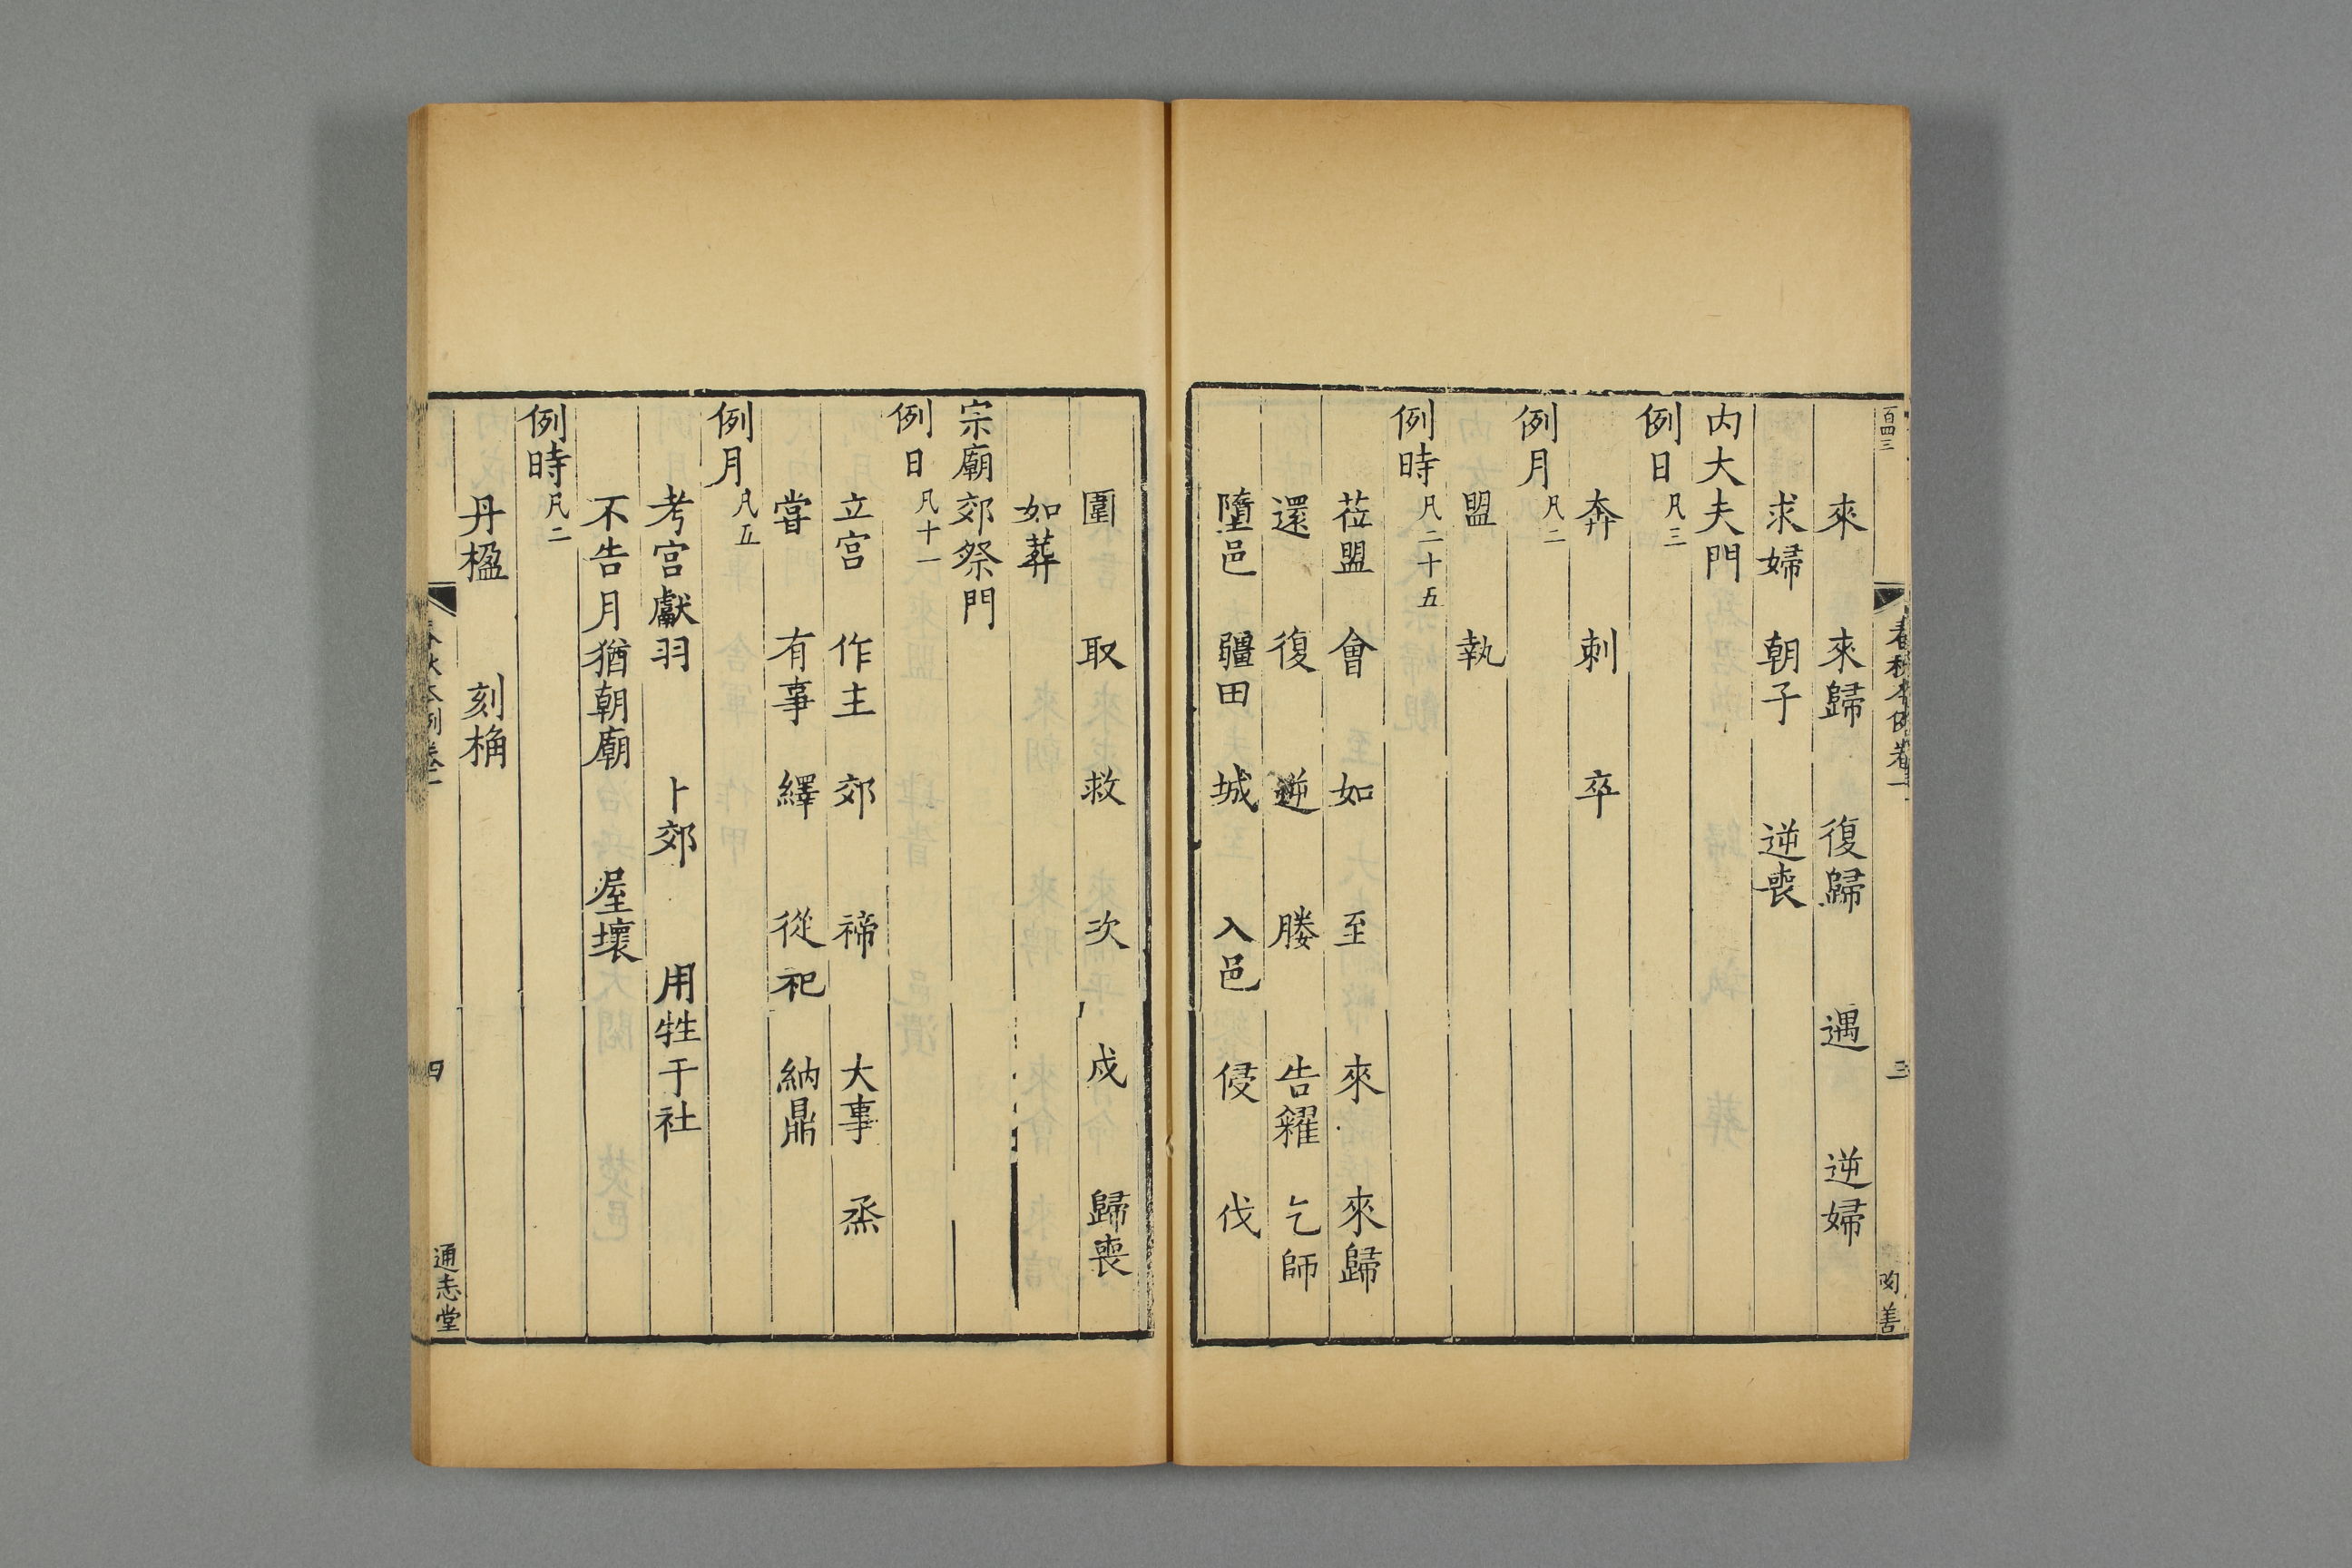 百四三
春秋本例卷一
三
善
來　來歸　復歸　遇　逆婦
求婦　朝子　逆喪
内大夫門
例日凡三
奔　刺　卒
例月凡二
盟　執
例時凡二十五
莅盟　會　如　至　來　來歸
還　復　逆　媵　告糴　乞師
墮邑　疆田　城　入邑　侵　伐
圍　取　救　次　戍　歸喪
如葬
宗廟郊祭門
例日凡十一
立宫　作主　郊　禘　大事　烝
嘗　有事　繹　從祀　納鼎
例月凡五
考宫獻羽　卜郊　用牲于社
不告月猶朝廟　屋壞
例時凡二
丹楹　刻桷
春秋本例卷一
四
通志堂